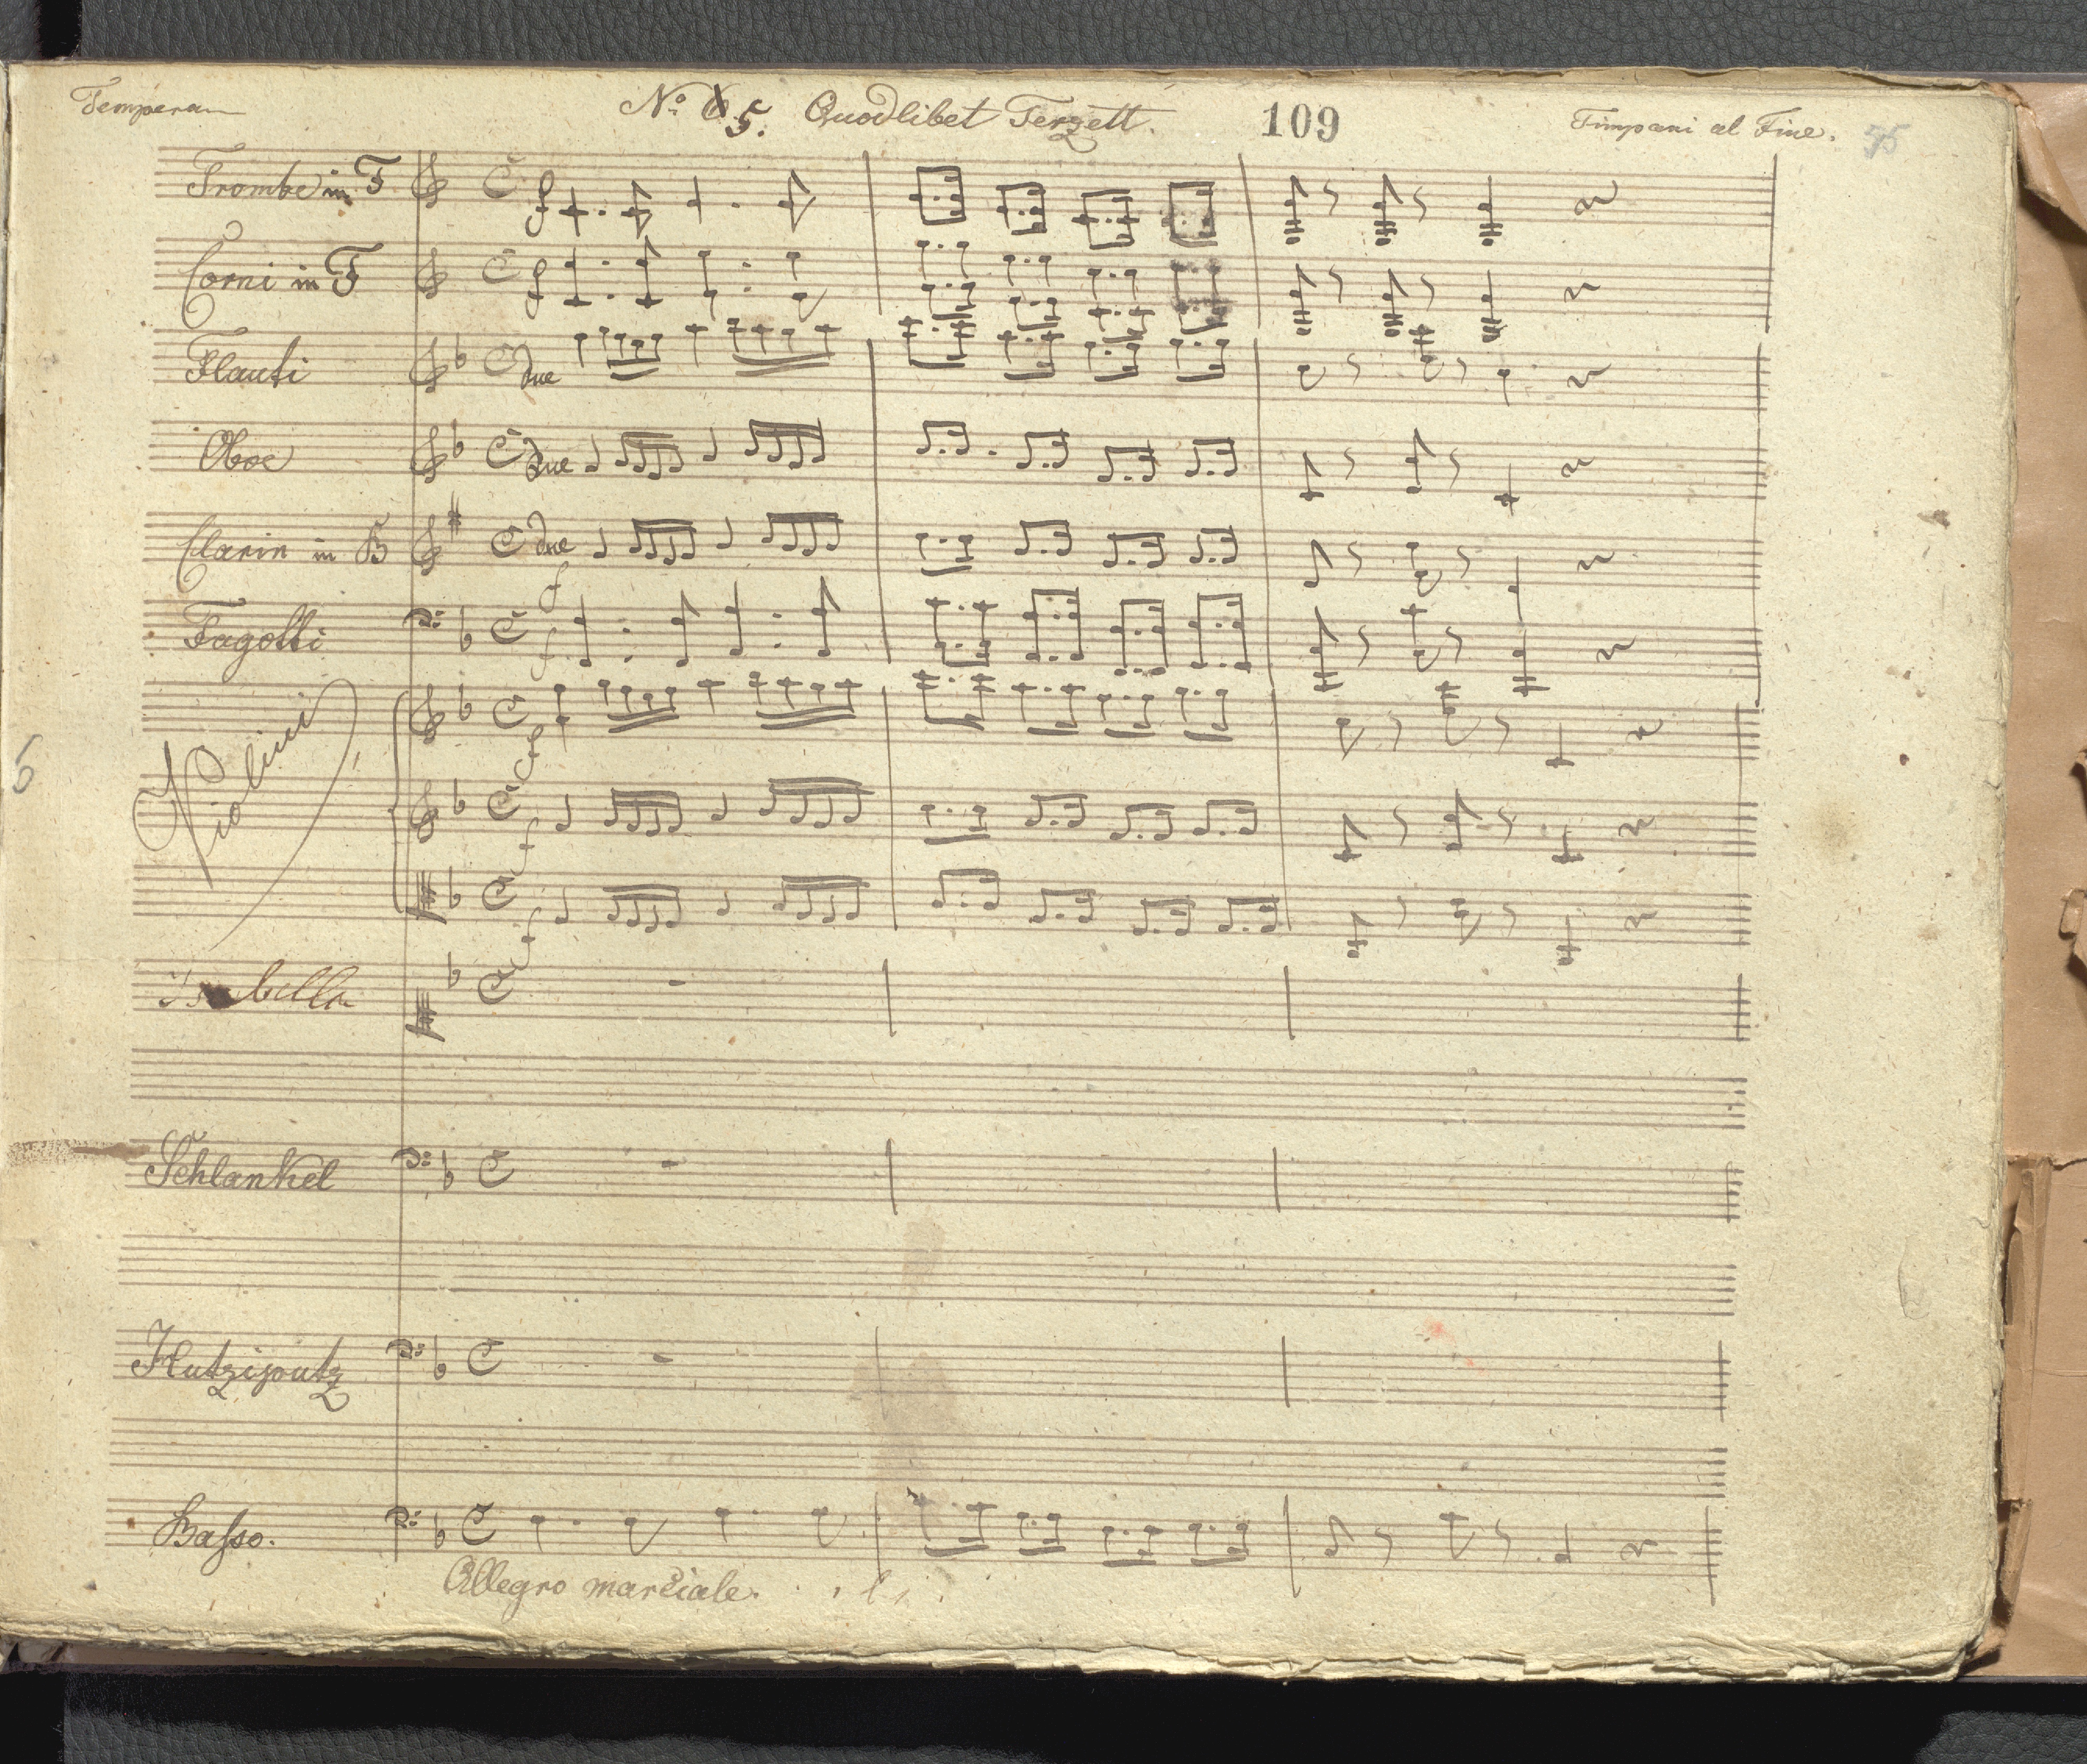 Tempera
No. 5. Quodlibet Terzett.
109
Timpani al Fine.
75
Trombe in F
f
Corni in F
f
Flauti
due
Oboe
due
Clarin in B
due
f
Fagotti
f
Violini
f
f
f
Isabella
Schlankel
Hutziputz
Basso.
Allegro marciale.
5